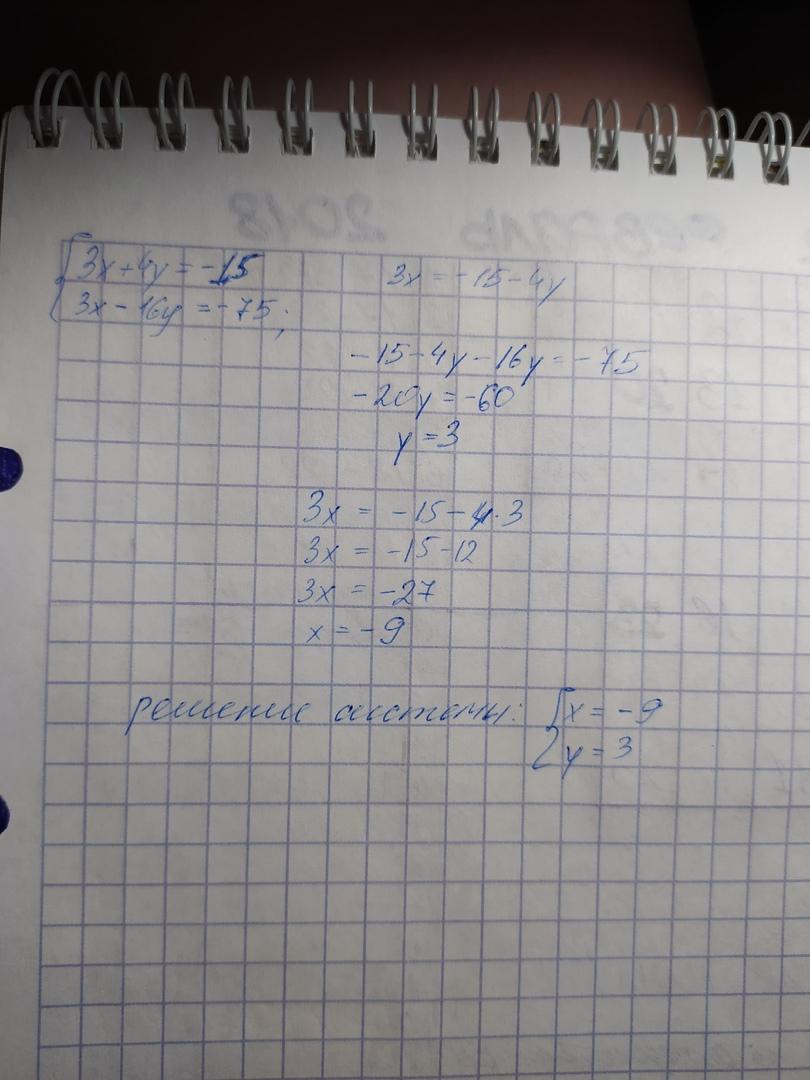 ФЕВРАЛЬ 2018
{3x + 4y = -15
{3x - 16y = -75;
3x = -15 - 4y
-15 - 4y - 16y = -75
-20y = -60
y = 3
3x = -15 - 4·3
3x = -15 - 12
3x = -27
x = -9
решение системы: {x = -9
{y = 3